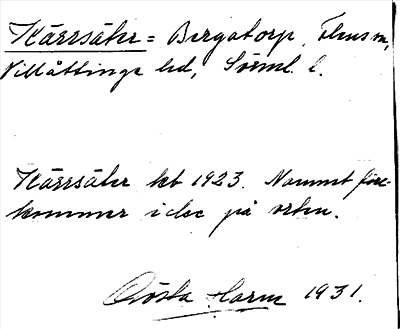 Kärrsäter = Bergatorp, Flens sn,
Villåttinge hd, Sörml. l.
Kärrsäter kb 1923. Namnet före-
kommer icke på orten.
Gösta Harm 1931.